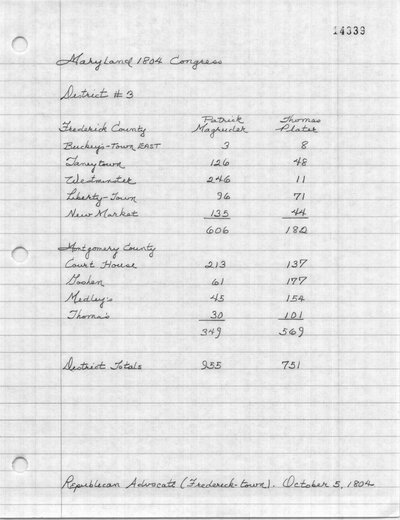 14339
Maryland 1804 Congress
District #3
Patrick Thomas
Frederick County Magruder Plater
Buckey's-Town EAST 3 8
Taneytown 126 48
Westminster 246 11
Liberty-Town 96 71
New Market 135 44
606 182
Montgomery County
Court House 213 137
Goshen 61 177
Medley's 45 154
Thomas's 30 101
349 569
District Totals 955 751
Republican Advocate (Frederick-town). October 5, 1804